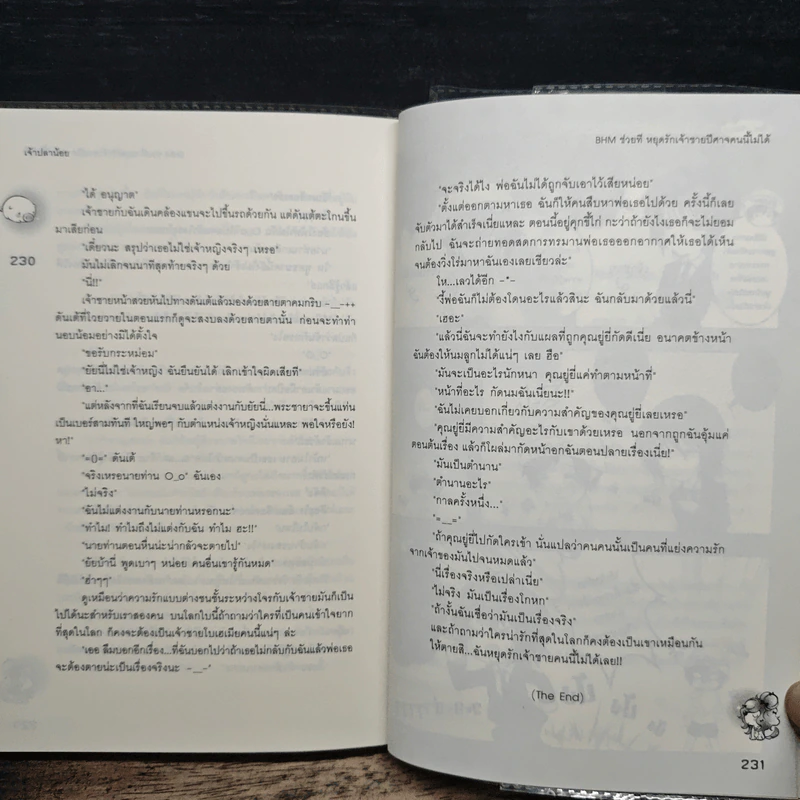 เจ้าปลาน้อย
"ได้ อนุญาต"
เจ้าชายกับฉันเดินคล้องแขนจะไปขึ้นรถด้วยกัน แต่ดันเต้ตะโกนขึ้น
มาเสียก่อน
"เดี๋ยวนะ สรุปว่าเธอไม่ใช่เจ้าหญิงจริงๆ เหรอ"
230
มันไม่เลิกจนนาทีสุดท้ายจริงๆ ด้วย
"นี่!!"
เจ้าชายหน้าสวยหันไปทางดันเต้แล้วมองด้วยสายตาคมกริบ -__-++
ดันเต้ที่โวยวายในตอนแรกก็ดูจะสงบลงด้วยสายตานั้น ก่อนจะทำท่า
นอบน้อมอย่างมิได้ตั้งใจ
"ขอรับกระหม่อม"
"ยัยนี่ไม่ใช่เจ้าหญิง ฉันยืนยันได้ เลิกเข้าใจผิดเสียที"
"อา..."
"แต่หลังจากที่ฉันเรียนจบแล้วแต่งงานกับยัยนี่...พระชายาจะขึ้นแท่น
เป็นเบอร์สามทันที ใหญ่พอๆ กับตำแหน่งเจ้าหญิงนั่นแหละ พอใจหรือยัง!
หา!"
"=[]=" ดันเต้
"จริงเหรอนายท่าน O_o" ฉันเอง
"ไม่จริง"
"ฉันไม่แต่งงานกับนายท่านหรอกนะ"
"ทำไม! ทำไมถึงไม่แต่งกับฉัน ทำไม ฮะ!!"
"นายท่านตอนหื่นน่ะน่ากลัวจะตายไป"
"ยัยบ้านี่ พูดเบาๆ หน่อย คนอื่นเขารู้กันหมด"
"ฮ่าๆๆ"
ดูเหมือนว่าความรักแบบต่างชนชั้นระหว่างโจรกับเจ้าชายมันก็เป็น
ไปได้นะสำหรับเราสองคน บนโลกใบนี้ถ้าถามว่าใครที่เป็นคนเข้าใจยาก
ที่สุดในโลก ก็คงจะต้องเป็นเจ้าชายโบเฮเมียคนนี้แน่ๆ ล่ะ
"เออ ลืมบอกอีกเรื่อง...ที่ฉันบอกไปว่าถ้าเธอไม่กลับกับฉันแล้วพ่อเธอ
จะต้องตายน่ะเป็นเรื่องจริงนะ -__-"
BHM ช่วยที หยุดรักเจ้าชายปีศาจคนนี้ไม่ได้
"จะจริงได้ไง พ่อฉันไม่ได้ถูกจับเอาไว้เสียหน่อย"
"ตั้งแต่ออกตามหาเธอ ฉันก็ให้คนสืบหาพ่อเธอไปด้วย ครั้งนี้ก็เลย
จับตัวมาได้สำเร็จเนี่ยแหละ ตอนนี้อยู่คุกขี้ไก่ กะว่าถ้ายังไงเธอก็จะไม่ยอม
กลับไป ฉันจะถ่ายทอดสดการทรมานพ่อเธอออกอากาศให้เธอได้เห็น
จนต้องวิ่งโร่มาหาฉันเองเลยเชียวล่ะ"
โห...เลวได้อีก -*-
"งี้พ่อฉันก็ไม่ต้องโดนอะไรแล้วสินะ ฉันกลับมาด้วยแล้วนี่"
"เฮอะ"
"แล้วนี่ฉันจะทำยังไงกับแผลที่ถูกคุณยู่ยี่กัดดีเนี่ย อนาคตข้างหน้า
ฉันต้องให้นมลูกไม่ได้แน่ๆ เลย ฮือ"
"มันจะเป็นอะไรนักหนา คุณยู่ยี่แค่ทำตามหน้าที่"
"หน้าที่อะไร กัดนมฉันเนี่ยนะ!!"
"ฉันไม่เคยบอกเกี่ยวกับความสำคัญของคุณยู่ยี่เลยเหรอ"
"คุณยู่ยี่มีความสำคัญอะไรกับเขาด้วยเหรอ นอกจากถูกฉันอุ้มแค่
ตอนต้นเรื่อง แล้วก็โผล่มากัดหน้าอกฉันตอนปลายเรื่องเนี่ย!"
"มันเป็นตำนาน"
"ตำนานอะไร"
"กาลครั้งหนึ่ง..."
"=__="
"ถ้าคุณยู่ยี่ไปกัดใครเข้า นั่นแปลว่าคนคนนั้นเป็นคนที่แย่งความรัก
จากเจ้าของมันไปจนหมดแล้ว"
"นี่เรื่องจริงหรือเปล่าเนี่ย"
"ไม่จริง มันเป็นเรื่องโกหก"
"ถ้างั้นฉันเชื่อว่ามันเป็นเรื่องจริง"
และถ้าถามว่าใครน่ารักที่สุดในโลกก็คงต้องเป็นเขาเหมือนกัน
ให้ตายสิ...ฉันหยุดรักเจ้าชายคนนี้ไม่ได้เลย!!
(The End)
231